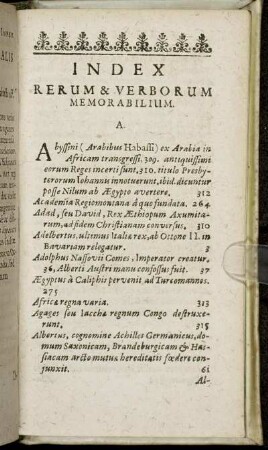 INDEX
RERUM & VERBORUM
MEMORABILIUM.
A.
Abyssini (Arabibus Habassi) ex Arabia in
Africam transgressi. 309. antiquissimi
eorum Reges incerti sunt. 310. titulo Presby-
terorum Iohannis innotuerunt, ibid. dicuntur
posse Nilum ab Ægypto avertere. 312
Academia Regiomontana à quo fundata. 264
Adad, seu David, Rex Æthiopum Axumita-
rum, ad fidem Christianam conversus. 310
Adelbertus, ultimus Italiæ rex, ab Ottone II. in
Bavariam relegatur. 3
Adolphus Nassovii Comes, Imperator creatur.
36, Alberti Austri manu confossus fuit. 37
Ægyptus à Caliphis pervenit, ad Turcomannos.
275
Africæ regna varia. 313
Agages seu Iacchæ regnum Congo destruxe-
runt. 315
Albertus, cognomine Achilles Germanicus, do-
mum Saxonicam, Brandeburgicam & Has-
siacam arcto mutuæ hereditatis fœdere con-
junxit. 61
Al-